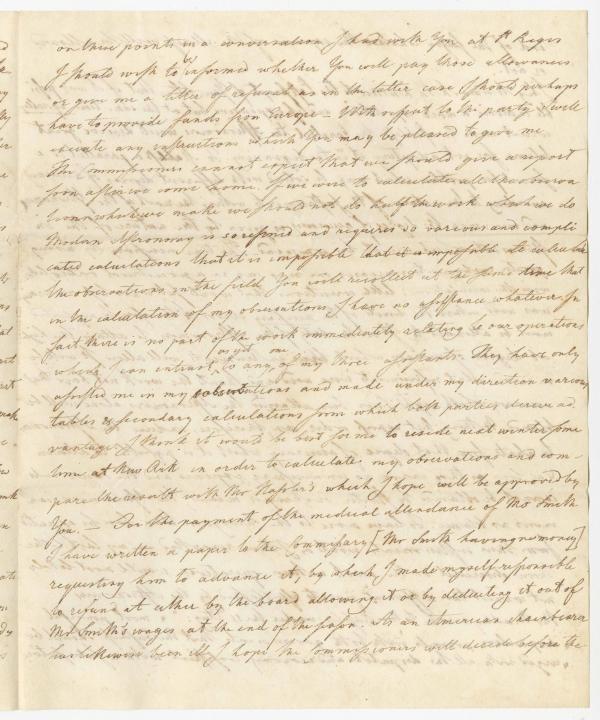 on these points in a conversation I had with You at St Regis
I should wish to be informed whether You will pay those allowances
or give me a letter of refusal as in the latter case I should perhaps
have to provide funds from Europe – With respect to the party I will
execute any instructions which You may be pleased to give me
The Commissioners cannot expect that we should give a report
soon after we come home. If we were to calculate all the observa
tions which we make we should not do half the work which we do
Modern Astronomy is so refined and requires so various and compli
cated calculations that it is impossible that it is impossible to calculate
the observations in the field You will recollect at the same time that
in the calculation of my observations I have no assistance whatever In
fact there is no part of the work immediately relating to our operations
which I can entrust as yet to any one of my three assistants. They have only
assisted me in my observations and made under my direction various
tables & secondary calculations from which both parties derive ad
vantage. I think it would be best for me to reside next winter some
time at New Ark in order to calculate my observations and com-
pare the result with Mr Hassler's which I hope will be approved by
You. – For the payment of the medical attendance of Mr Smith
I have written a paper to the Commissary [Mr Smith having no money]
requesting him to advance it, by which I made myself responsible
to refund it either by the board allowing it or by deducting it out of
Mr Smith's wages at the end of the season. As an American chainbearer
has likewise been ill I hope the Commissioners will decide before the